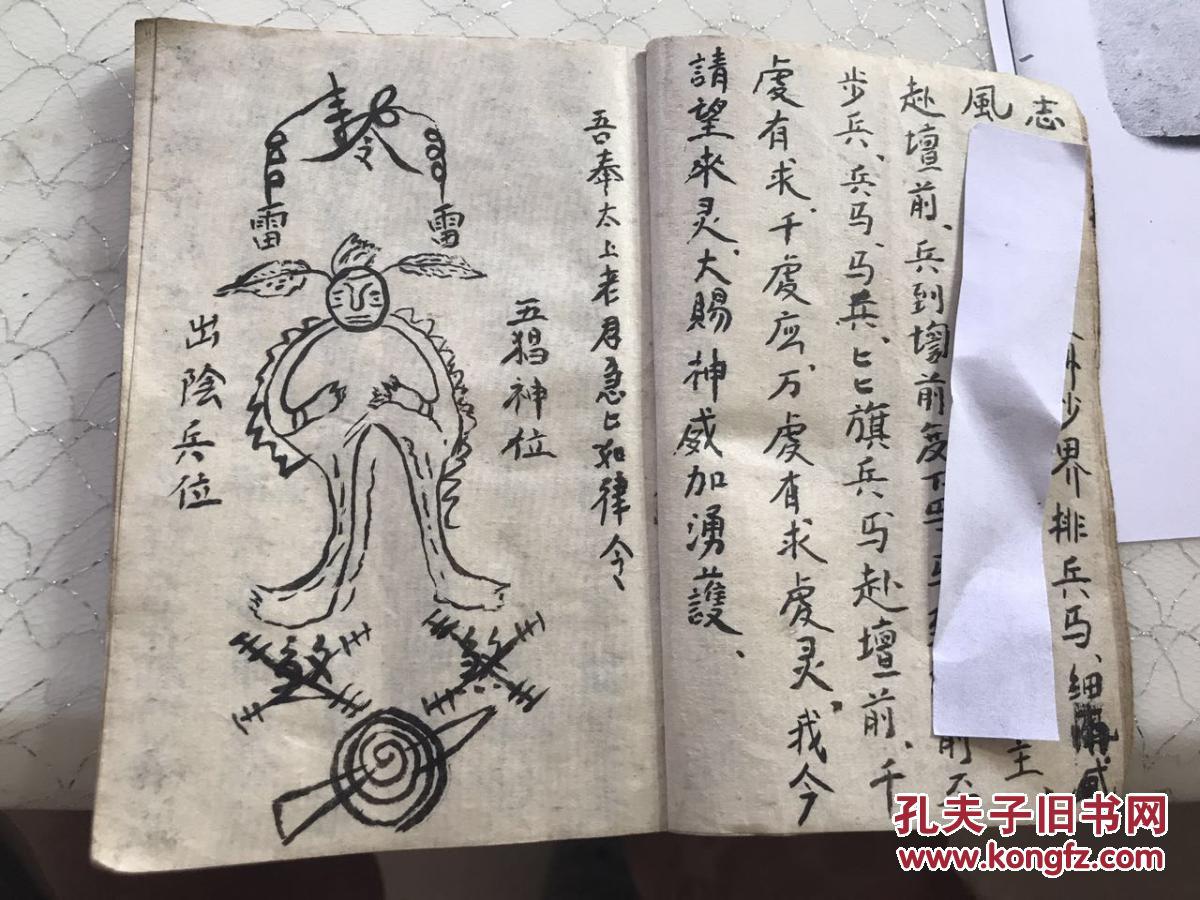 志
風
界排兵马、細
主、
赴壇前、兵到壇前
前
步兵、兵马、马兵、匕匕旗兵马赴壇前、千
處有求、千處应、万處有求處灵、我今
請望求灵、大賜神威加湧護、
吾奉太上老君急匕如律令
五猖神位
雷
雷
出陰兵位
孔夫子旧书网
www.kongfz.com